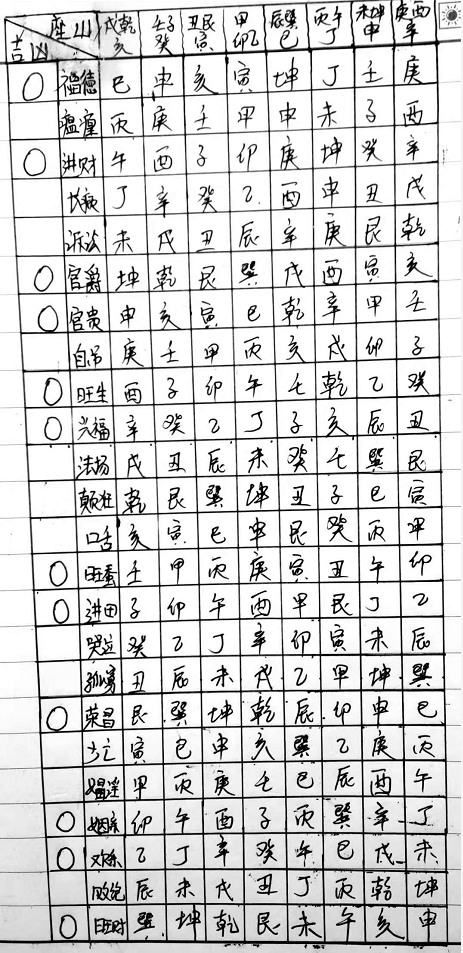 吉凶 座山 戌乾亥 壬子癸 丑艮寅 甲卯乙 辰巽巳 丙午丁 未坤申 庚酉辛
○ 福德 巳 申 亥 寅 坤 丁 壬 庚
瘟疽 丙 庚 壬 甲 申 未 子 酉
○ 进财 午 酉 子 卯 庚 坤 癸 辛
长病 丁 辛 癸 乙 酉 申 丑 戌
诉讼 未 戌 丑 辰 辛 庚 艮 乾
○ 官爵 坤 乾 艮 巽 戌 酉 寅 亥
○ 官贵 申 亥 寅 巳 乾 辛 甲 壬
自吊 庚 壬 甲 丙 亥 戌 卯 子
○ 旺生 酉 子 卯 午 壬 乾 乙 癸
○ 兴福 辛 癸 乙 丁 子 亥 辰 丑
法场 戌 丑 辰 未 癸 壬 巽 艮
颠狂 乾 艮 巽 坤 丑 子 巳 寅
口舌 亥 寅 巳 申 艮 癸 丙 甲
○ 旺蚕 壬 甲 丙 庚 寅 丑 午 卯
○ 进田 子 卯 午 酉 甲 艮 丁 乙
哭泣 癸 乙 丁 辛 卯 寅 未 辰
孤寡 丑 辰 未 戌 乙 甲 坤 巽
○ 荣昌 艮 巽 坤 乾 辰 卯 申 巳
少亡 寅 巳 申 亥 巽 乙 庚 丙
娼淫 甲 丙 庚 壬 巳 辰 酉 午
○ 姻亲 卯 午 酉 子 丙 巽 辛 丁
○ 欢乐 乙 丁 辛 癸 午 巳 戌 未
败绝 辰 未 戌 丑 丁 丙 乾 坤
○ 旺财 巽 坤 乾 艮 未 午 亥 申